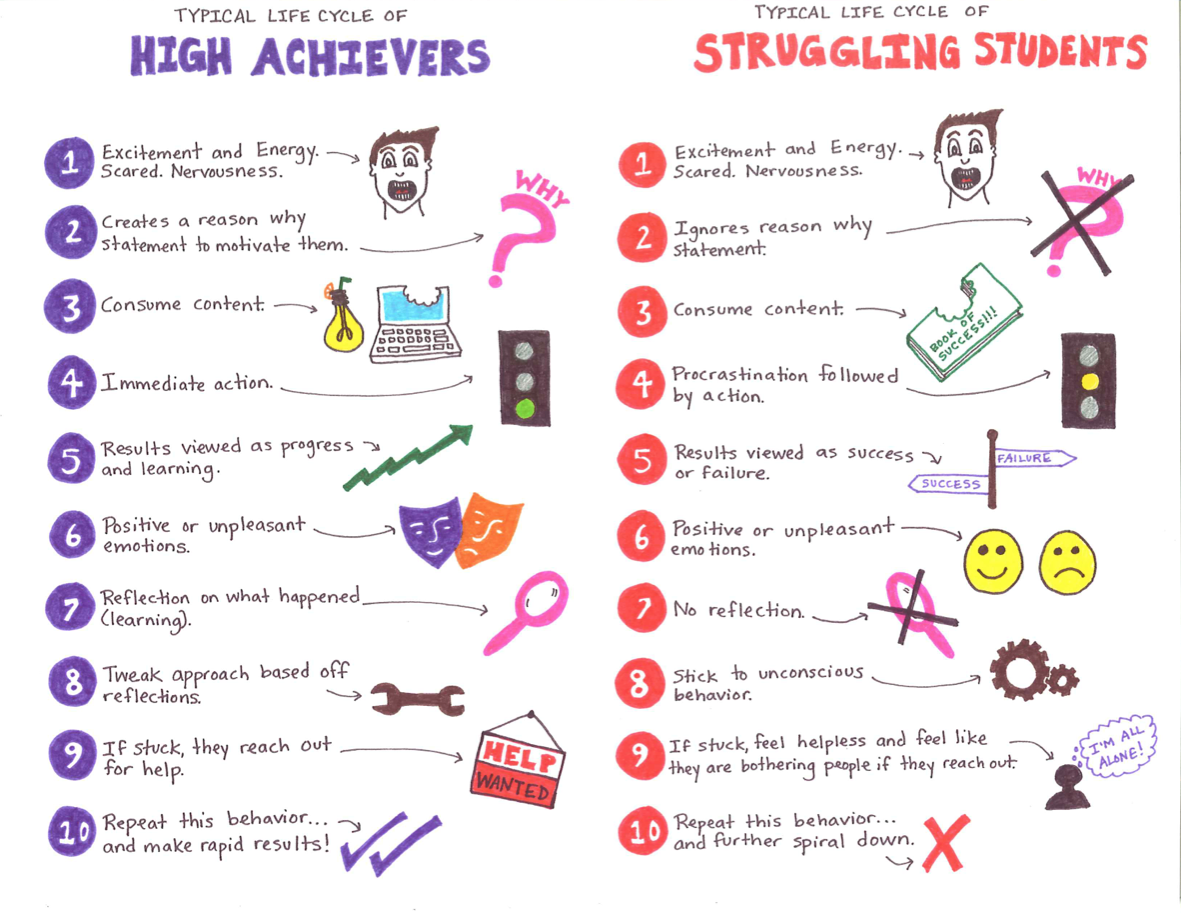 TYPICAL LIFE CYCLE OF
HIGH ACHIEVERS
1 Excitement and Energy.
Scared. Nervousness.
2 Creates a reason why
statement to motivate them.
WHY
3 Consume content.
4 Immediate action.
5 Results viewed as progress
and learning.
6 Positive or unpleasant
emotions.
7 Reflection on what happened
(learning).
8 Tweak approach based off
reflections.
9 If stuck, they reach out
for help.
HELP
WANTED
10 Repeat this behavior...
and make rapid results!
TYPICAL LIFE CYCLE OF
STRUGGLING STUDENTS
1 Excitement and Energy.
Scared. Nervousness.
2 Ignores reason why
statement.
WHY
3 Consume content.
BOOK OF
SUCCESS!!!
4 Procrastination followed
by action.
5 Results viewed as success
or failure.
FAILURE
SUCCESS
6 Positive or unpleasant
emotions.
7 No reflection.
8 Stick to unconscious
behavior.
9 If stuck, feel helpless and feel like
they are bothering people if they reach out.
I'M ALL
ALONE!
10 Repeat this behavior...
and further spiral down.